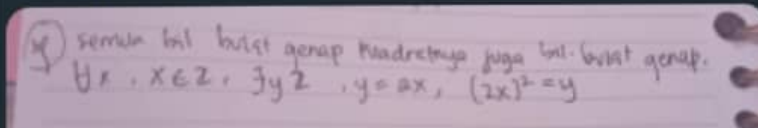 g) semua bil bulat genap kuadratnya juga bil. bulat genap.
∀x, x∈Z, ∃y Z, y=2x, (2x)²=y